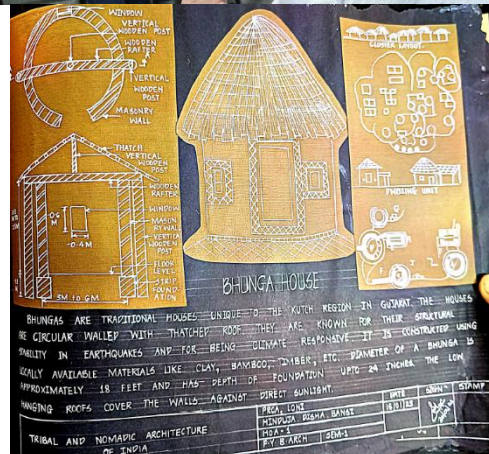 WINDOW
VERTICAL
WOODEN POST
WOODEN
RAFTER
VERTICAL
WOODEN
POST
MASONRY
WALL
THATCH
VERTICAL
WOODEN POST
WOODEN
RAFTER
WINDOW
MASON
RY WALL
VERTICA
WOODEN
POST
FLOOR
LEVEL
STRIP
FOUND-
ATION
0.6
M
0.4M
3M TO 6M
CLUSTER LAYOUT.
UNIT
BHUNGA HOUSE
BHUNGAS ARE TRADITIONAL HOUSES UNIQUE TO THE KUTCH REGION IN GUJARAT. THE HOUSES
ARE CIRCULAR WALLED WITH THATCHED ROOF. THEY ARE KNOWN FOR THEIR STRUCTURAL
STABILITY IN EARTHQUAKES AND FOR BEING CLIMATE RESPONSIVE. IT IS CONSTRUCTED USING
LOCALLY AVAILABLE MATERIALS LIKE CLAY, BAMBOO, TIMBER, ETC. DIAMETER OF A BHUNGA IS
APPROXIMATELY 18 FEET AND HAS DEPTH OF FOUNDATION UPTO 24 INCHES. THE LOW
HANGING ROOFS COVER THE WALLS AGAINST DIRECT SUNLIGHT.
TRIBAL AND NOMADIC ARCHITECTURE
OF INDIA
PRCA, LONI
HINDUJA DISHA BANSI
HOA-1
F.Y. B ARCH SEM-1
DATE
SIGN
STAMP